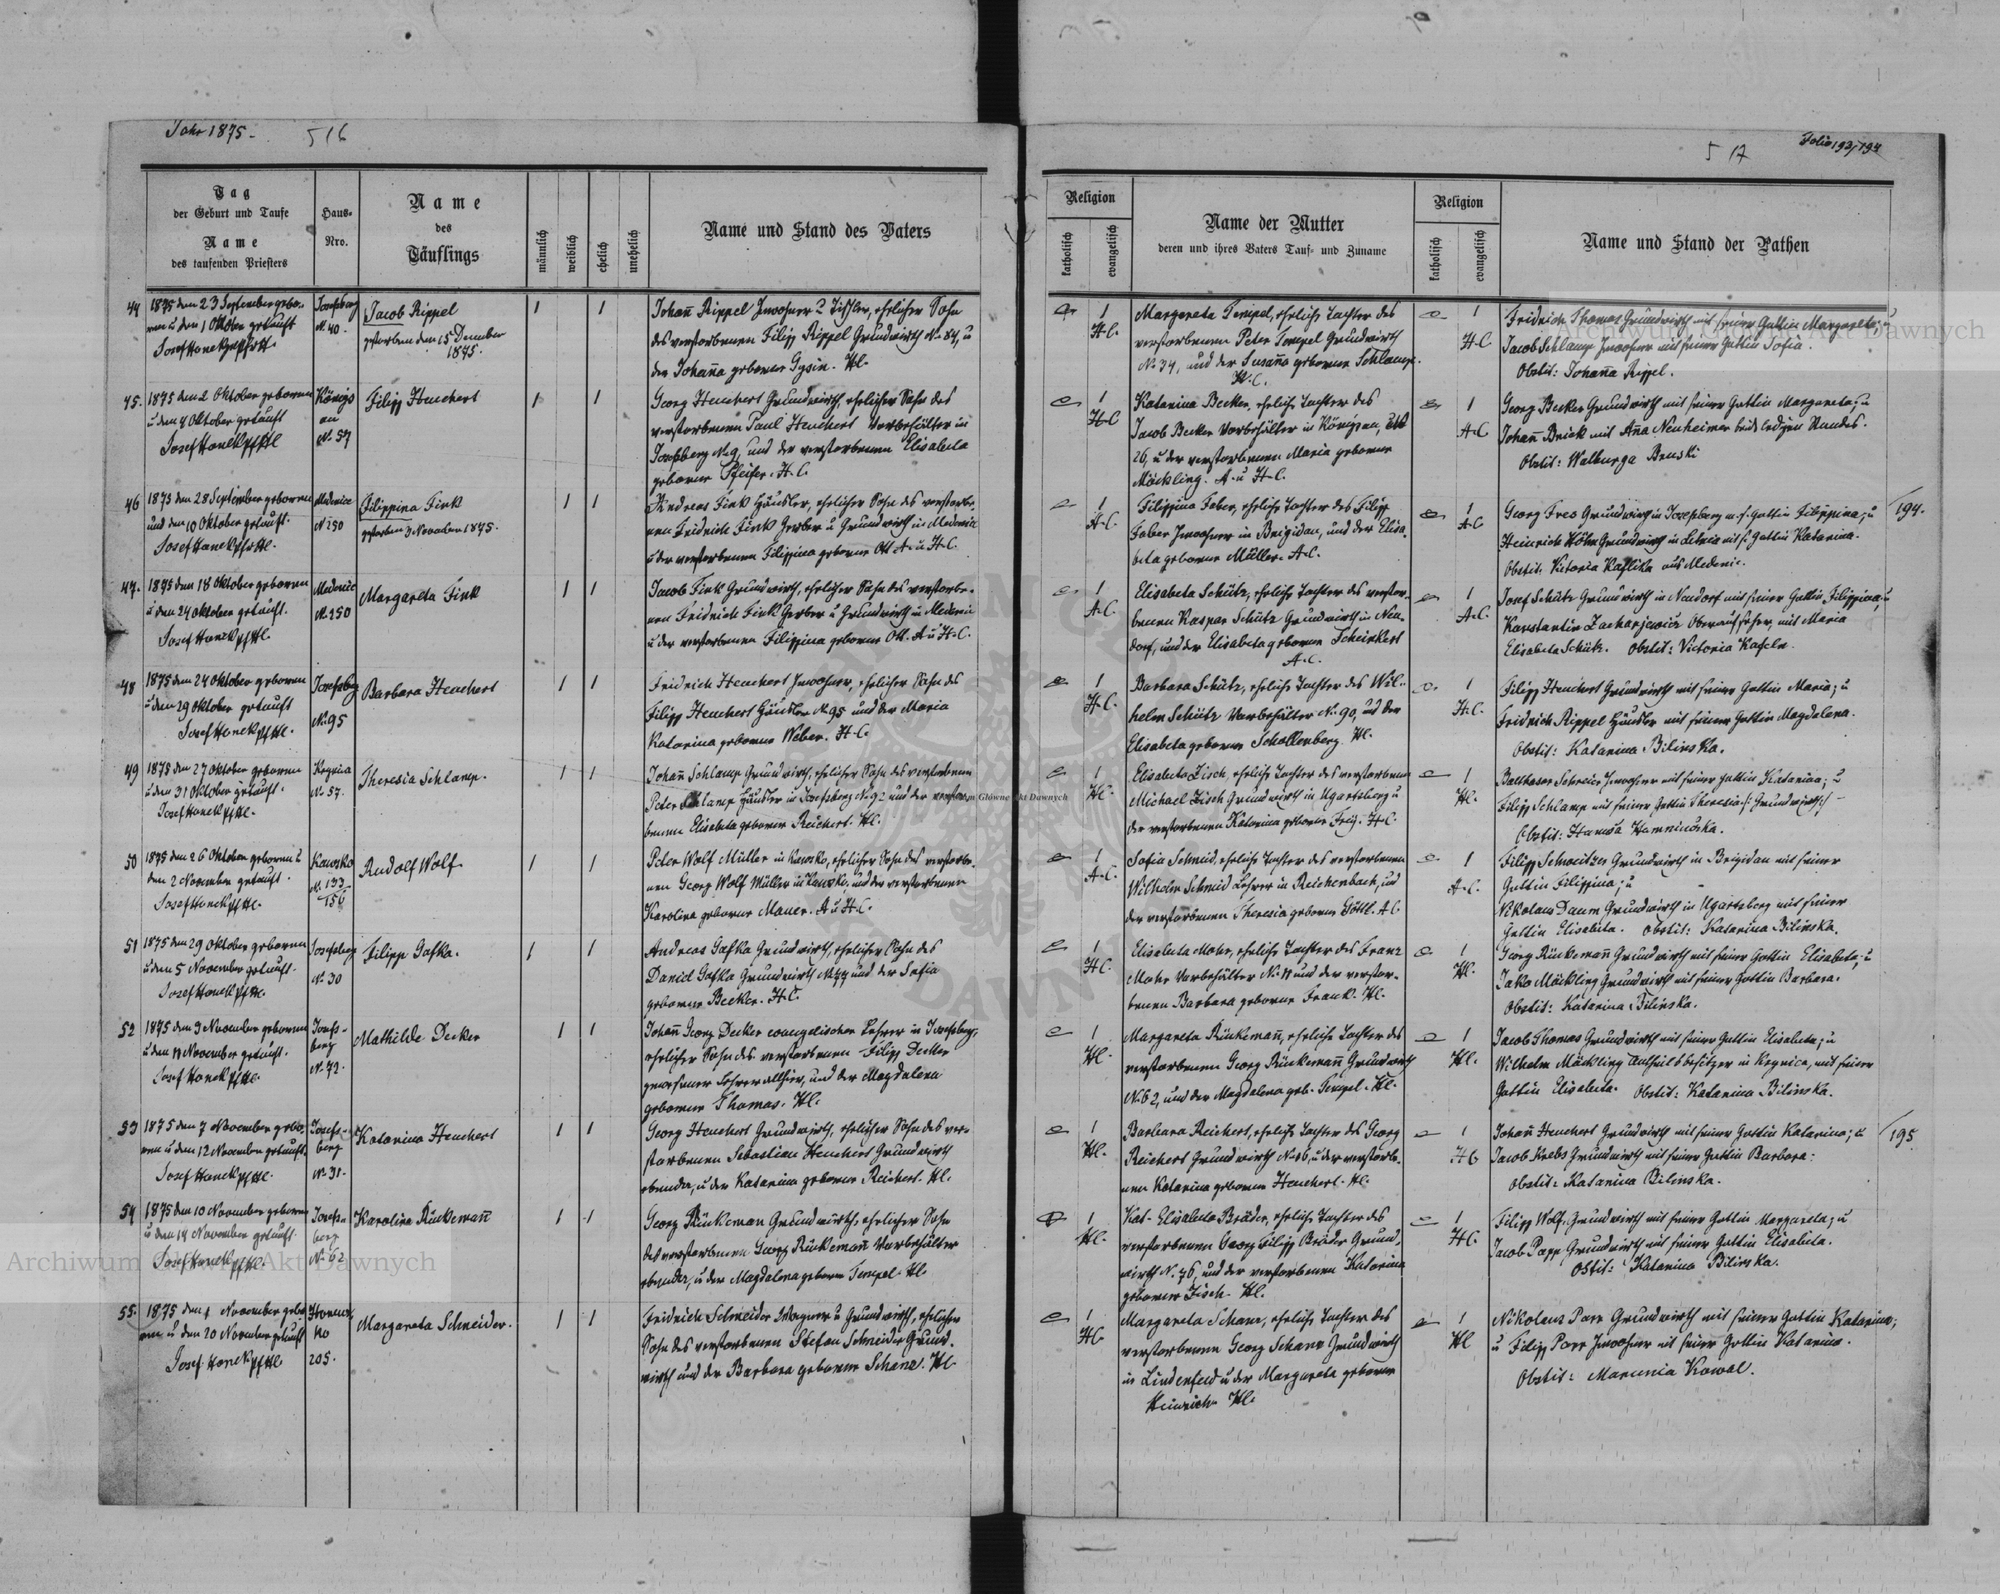 Jahr 1875.
516
Folio 193/194
517
Tag
der Geburt und Taufe
Name
des taufenden Priesters
Haus-
Nro.
Name
des
Täuflings
männlich
weiblich
ehelich
unehelich
Name und Stand des Vaters
Religion
katholisch
evangelisch
Name der Mutter
deren und ihres Vaters Tauf- und Zuname
Religion
katholisch
evangelisch
Name und Stand der Pathen
44
1875 den 23 September gebo-
ren u den 1 Oktober getauft
Josefsberg
N. 40.
Jacob Rippel
gestorben den 15 Dezember
1875.
Johañ Rippel Inwohner u Tischler, ehelicher Sohn
des verstorbenen Filipp Rippel Grundwirth N. 84, u
der Johaña geborene Gysin. H.C.
Margareta Tempel, eheliche Tochter des
verstorbenen Peter Tempel Grundwirth
N. 34, und der Susaña geborene Schlamp.
H.C.
Fridrich Thomas Grundwirth mit seiner Gattin Margareta; u
Jacob Schlamp Inwohner mit seiner Gattin Sofia.
Obstit: Johaña Rippel.
45.
1875 den 2 Oktober geboren
u den 4 Oktober getauft
Josef Honek
Königs
au
N. 57
Filipp Heuchert
Georg Heuchert Grundwirth, ehelicher Sohn des
verstorbenen Paul Heuchert Vorbehälter in
Josefsberg N. 9, und der verstorbenen Elisabeta
geborene Pfeifer. H.C.
Katarina Becker, eheliche Tochter des
Jacob Becker Vorbehälter in Königsau, N
26, u der verstorbenen Maria geborene
Möckling. A. u H.C.
Georg Becker Grundwirth mit seiner Gattin Margareta; u
Johañ Brick mit Aña Neuheimer beide ledigen Standes.
Obstit: Walburga Benski
46
1875 den 28 September geboren
und den 10 Oktober getauft.
Josef Honek
Medenice
N 250
Filippina Fink
gestorben 3 November 1875.
Andreas Fink Häusler, ehelicher Sohn des verstorbe-
nen Fridrich Fink Gerber u Grundwirth in Medenice
u der verstorbenen Filippina geborene Ott A. u H.C.
Filippina Faber, eheliche Tochter des Filipp
Faber Inwohner in Brigidau, und der Elisa-
beta geborene Müller. A.C.
Georg Fres Grundwirth in Josefsberg m. s. Gattin Filippina; u
Heinrich Höhn Grundwirth in Letnia mit s. Gattin Katarina.
Obstit. Victoria Kaflika aus Medenic.
194.
47.
1875 den 18 Oktober geboren
u den 24 Oktober getauft.
Josef Honek
Medenic
N. 250
Margareta Fink
Jacob Fink Grundwirth, ehelicher Sohn des verstorbe-
nen Fridrich Fink Gerber u Grundwirth in Medenic
u der verstorbenen Filippina geborene Ott. A u H.C.
Elisabeta Schütz, eheliche Tochter des verstor-
benen Kaspar Schütz Grundwirth in Neu-
dorf, und der Elisabeta geborene Scheinkert
A.C.
Josef Schütz Grundwirth in Neudorf mit seiner Gattin Filippina, u
Konstantin Zacharjewicz Oberaufseher, mit Maria
Elisabeta Schütz.
48
1875 den 24 Oktober geboren
u den 29 Oktober getauft
Josef Honek
Josefsberg
N. 95
Barbara Heuchert
Fridrich Heuchert Inwohner, ehelicher Sohn des
Filipp Heuchert Häusler N 95 und der Maria
Katarina geborene Weber. H.C.
Barbara Schütz, eheliche Tochter des Wil-
helm Schütz Vorbehälter N. 90, und der
Elisabeta geborene Schollenberg. H.C.
Filipp Heuchert Grundwirth mit seiner Gattin Maria; u
Fridrich Rippel Häusler mit seiner Gattin Magdalena.
Obstit: Katarina Bilinska.
49
1875 den 27 Oktober geboren
u den 31 Oktober getauft.
Josef Honek
Kognica
N. 57.
Theresia Schlamp.
Johañ Schlamp Grundwirth, ehelicher Sohn des verstorbenen
Peter Schlamp Häusler in Josefsberg N. 92 und der verstor-
benen Elisabeta geborene Reichert. H.C.
Elisabeta Zisch, eheliche Tochter des verstorbenen
Michael Zisch Grundwirth in Ugartsberg u
der verstorbenen Katarina geborene Freij. H.C.
Balthasar Schreier Inwohner mit seiner Gattin Katarina; u
Filipp Schlamp mit seiner Gattin Theresia
50
1875 den 26 Oktober geboren u
den 2 November getauft.
Josef Honek
Kawsko
N. 133
156
Rudolf Wolf
Peter Wolf Müller in Kawsko, ehelicher Sohn des verstorbe-
nen Georg Wolf Müller in Kawsko, und der verstorbenen
Karolina geborene Mauer. A u H.C.
Sofia Schmid, eheliche Tochter des verstorbenen
Wilhelm Schmid Lehrer in Reichenbach, und
der verstorbenen Theresia geborene Göttl. A.C
Filipp Schweitzer Grundwirth in Brigidau mit seiner
Gattin Filippina; u
Nikolaus Daum Grundwirth in Ugartsberg mit seiner
Gattin Elisabeta. Obstit: Katarina Bilinska.
51
1875 den 29 Oktober geboren
u den 5 November getauft.
Josef Honek
Josefsberg
N. 30
Filipp Gafka.
Andreas Gafka Grundwirth, ehelicher Sohn des
Daniel Gafka Grundwirth N. 44 und der Sofia
geborene Becker. H.C.
Elisabeta Mohr, eheliche Tochter des Franz
Mohr Vorbehälter N. 11 und der verstor-
benen Barbara geborene Frank. H.C.
Georg Rückemañ Grundwirth mit seiner Gattin Elisabeta; u
Jakob Möckling Grundwirth mit seiner Gattin Barbara.
Obstit: Katarina Bilinska.
52
1875 den 3 November geboren
u den 11 November getauft.
Josef Honek
Josefs-
berg
N. 72.
Mathilde Decker
Johañ Georg Decker evangelischer Lehrer in Josefsberg,
ehelicher Sohn des verstorbenen Filipp Decker
gewesener Lehrer allhier, und der Magdalena
geborene Thomas. H.C.
Margareta Rückemañ, eheliche Tochter des
verstorbenen Georg Rückemañ Grundwirth
N. 62, und der Magdalena geb. Tempel. H.C.
Jacob Thomas Grundwirth mit seiner Gattin Elisabeta; u
Wilhelm Möckling Antheilsbesitzer in Kognica, mit seiner
Gattin Elisabeta. Obstit: Katarina Bilinska.
53
1875 den 7 November gebo-
ren u den 12 November getauft.
Josef Honek
Josefs-
berg
N. 31.
Katarina Heuchert
Georg Heuchert Grundwirth, ehelicher Sohn des ver-
storbenen Sebastian Heuchert Grundwirth
ebenda, u der Katarina geborene Reichert. H.C.
Barbara Reichert, eheliche Tochter des Georg
Reichert Grundwirth N. 86, u der verstorbe-
nen Katarina geborene Heuchert. H.C.
Johañ Heuchert Grundwirth mit seiner Gattin Katarina; u
Jacob Krebs Grundwirth mit seiner Gattin Barbara:
Obstit: Katarina Bilinska.
195.
54
1875 den 10 November geboren
u den 14 November getauft.
Josef Honek
Josefs-
berg
N. 62
Karolina Rückemañ
Georg Rückeman Grundwirth, ehelicher Sohn
des verstorbenen Georg Rückemañ Vorbehälter
ebenda, u der Magdalena geborene Tempel. H.C
Kat. Elisabeta Bräder, eheliche Tochter des
verstorbenen Georg Filipp Bräder Grund-
wirth N. 76, und der verstorbenen Katarina
geborene Zisch. H.C.
Filipp Wolf, Grundwirth mit seiner Gattin Margareta; u
Jacob Papp Grundwirth mit seiner Gattin Elisabeta.
Obstit: Katarina Bilinska.
55.
1875 den 1 November gebo-
ren u den 20 November getauft
Josef Honek
205.
Margareta Schneider.
Fridrich Schneider Wagner u Grundwirth, ehelicher
Sohn des verstorbenen Stefan Schneider Grund-
wirth und der Barbara geborene Schanz. H.C
Margareta Schanz, eheliche Tochter des
verstorbenen Georg Schanz Grundwirth
in Lindenfeld u der Margareta geborene
Heinrich. H.C.
Nikolaus Parr Grundwirth mit seiner Gattin Katarina;
u Filipp Parr Inwohner mit seiner Gattin Katarina.
Obstit: Marunia Kowal.
Archiwum Główne Akt Dawnych